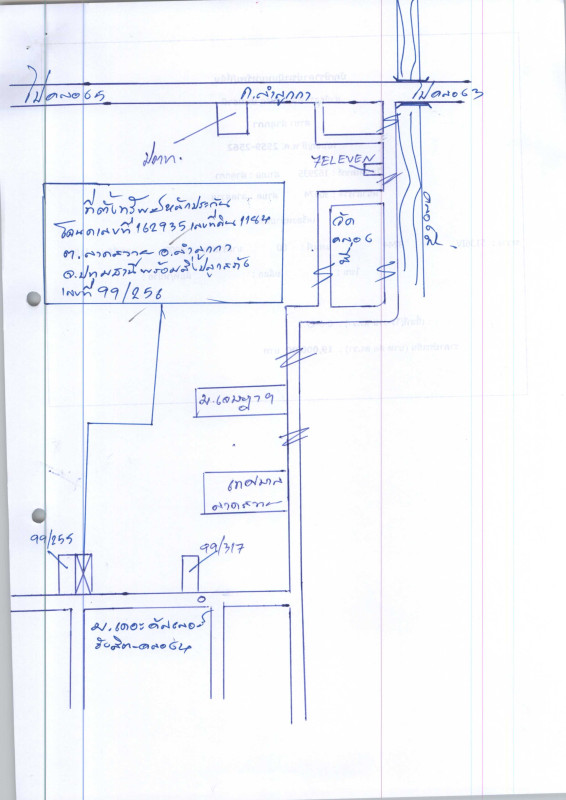 ไปคลอง5
ถ.ลำลูกกา
ไปคลอง3
ปตท.
7ELEVEN
วัด
คลอง
สี่
คลองสี่
ที่ตั้งทรัพย์หลักประกัน
โฉนดเลขที่ 162935 เลขที่ดิน 1184
ต.ลาดสวาย อ.ลำลูกกา
จ.ปทุมธานีพร้อมสิ่งปลูกสร้าง
เลขที่ 99/256
เทศบาล
ลาดสวาย
99/255
99/317
ม.เดอะคัลเลอร์
รังสิต-คลอง4